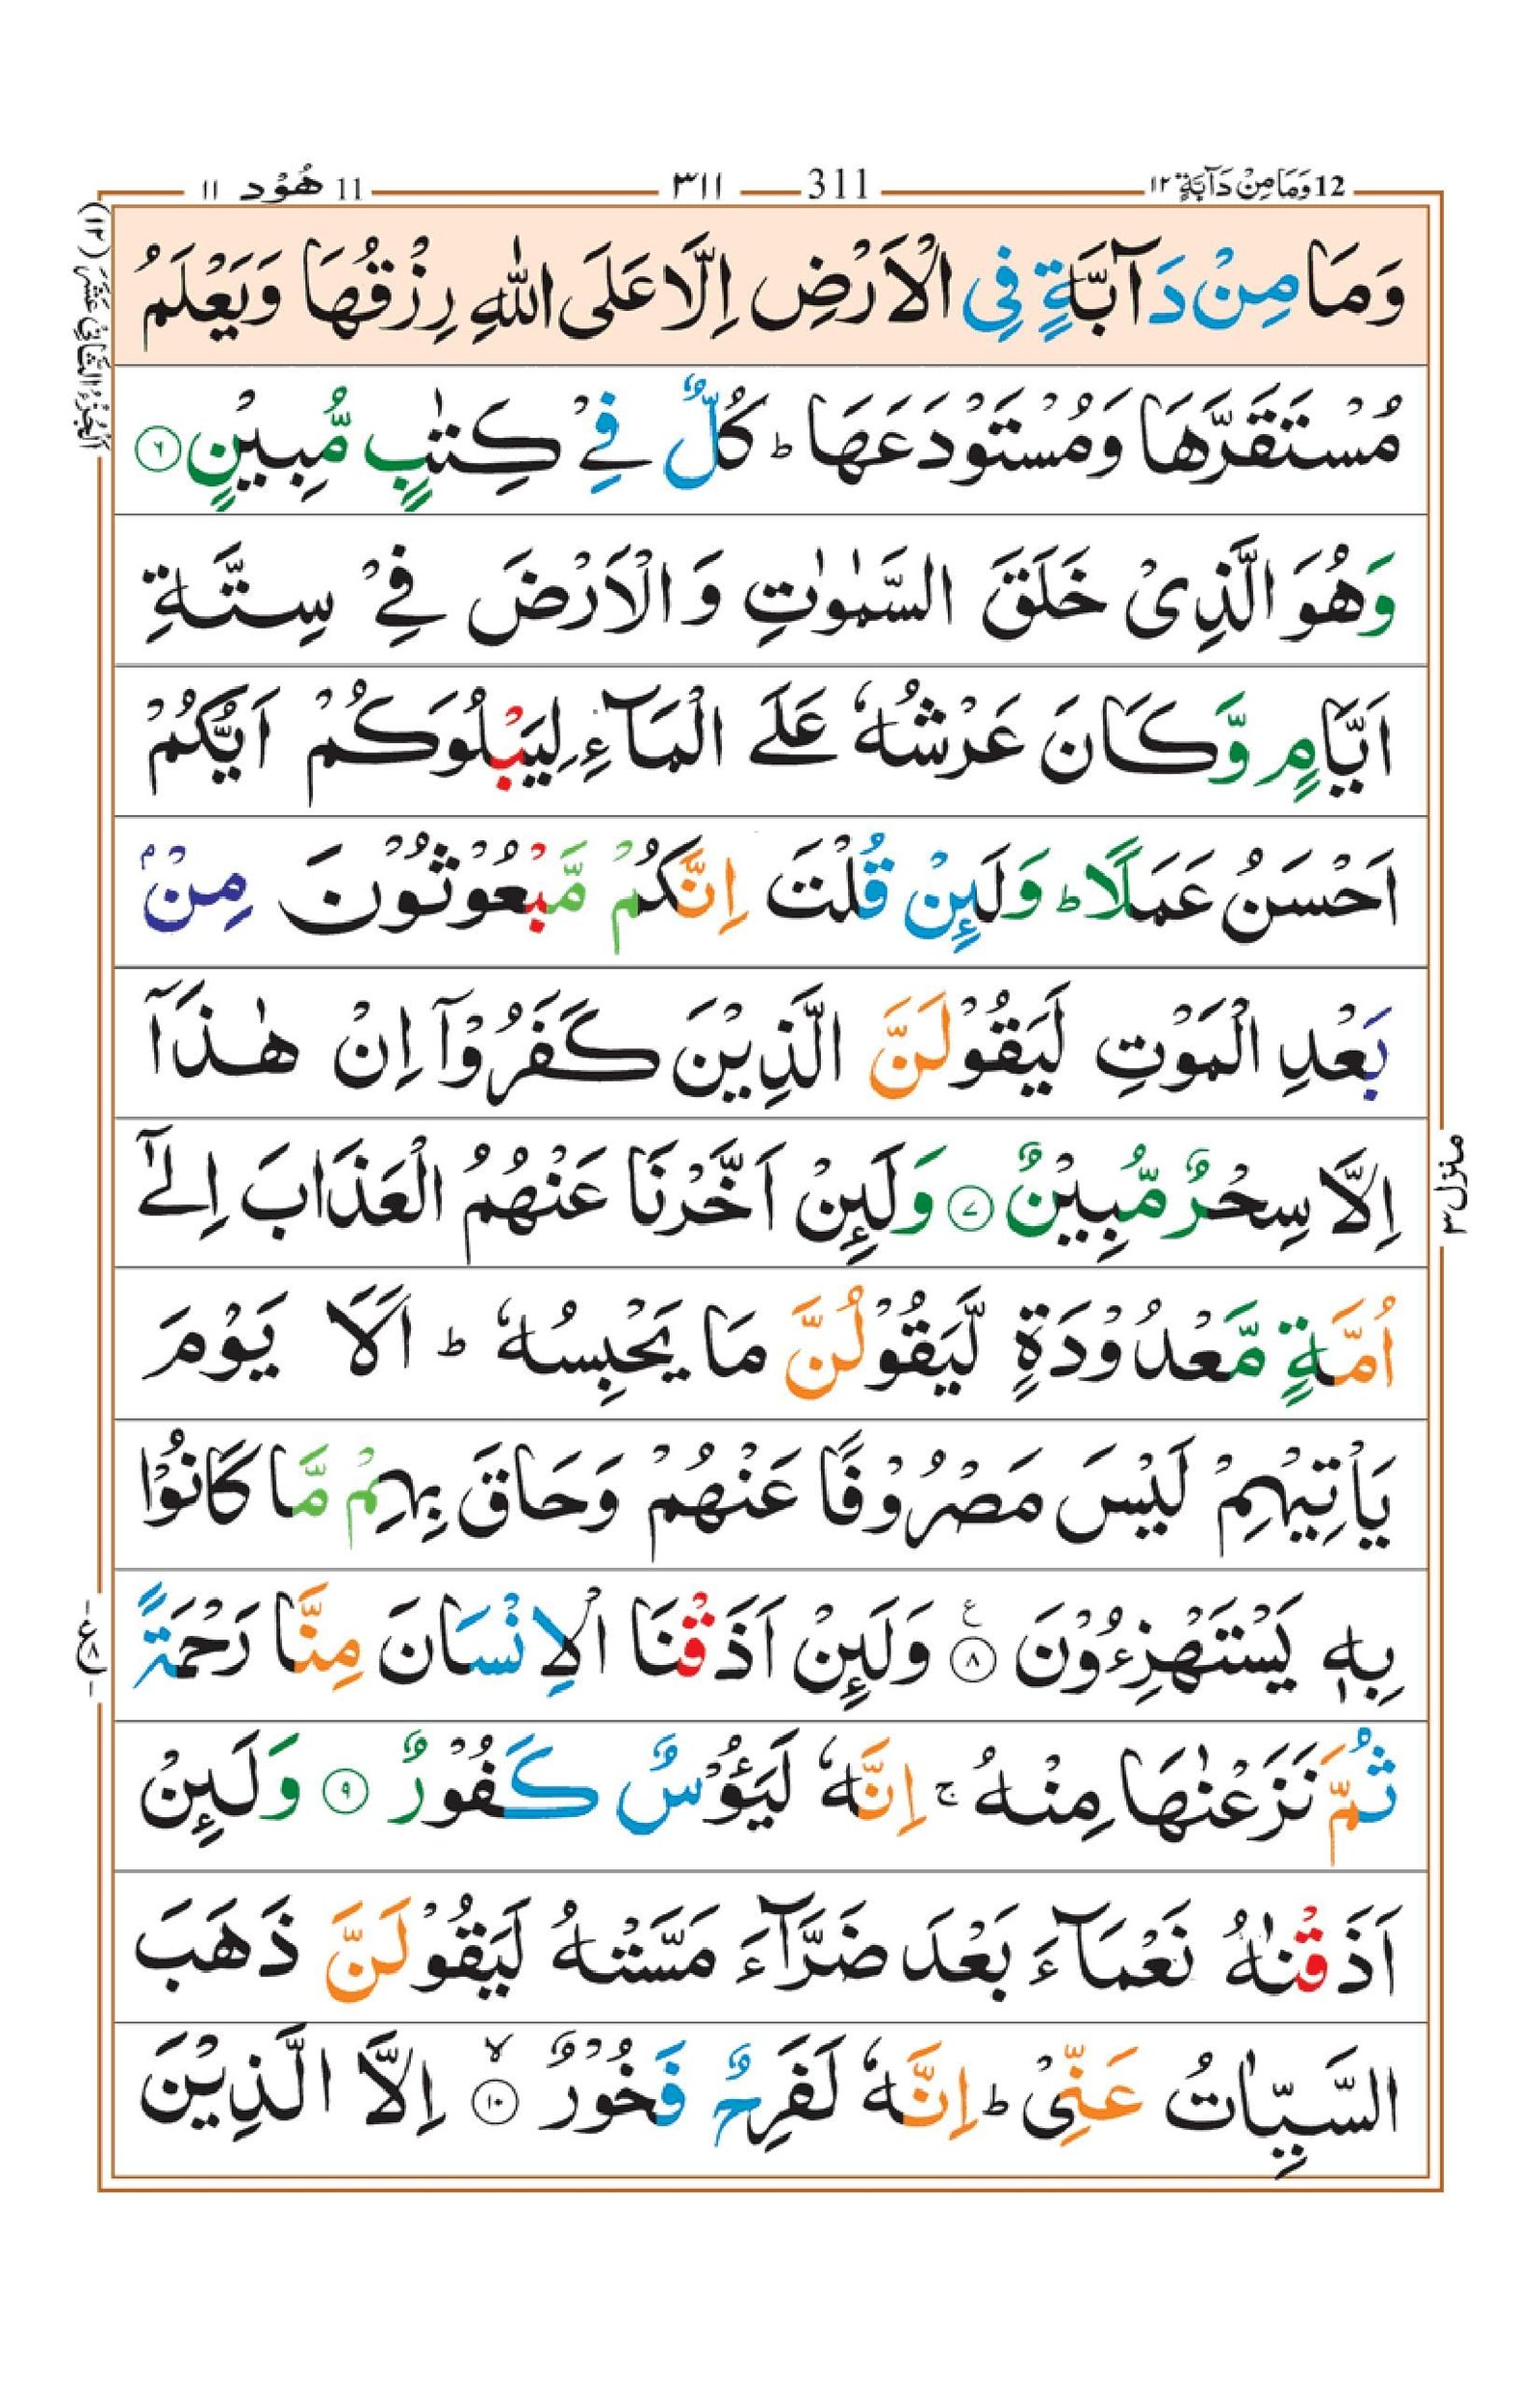 12 وَمَا مِنْ دَآبَّةٍ ١٢ 311 ٣١١ 11 هُوْد ١١
وَمَا مِنْ دَآبَّةٍ فِي الْاَرْضِ اِلَّا عَلَى اللّٰهِ رِزْقُهَا وَيَعْلَمُ
مُسْتَقَرَّهَا وَمُسْتَوْدَعَهَا ؕ كُلٌّ فِيْ كِتٰبٍ مُّبِيْنٍ ۶
وَهُوَ الَّذِيْ خَلَقَ السَّمٰوٰتِ وَالْاَرْضَ فِيْ سِتَّةِ
اَيَّامٍ وَّكَانَ عَرْشُهٗ عَلَى الْمَآءِ لِيَبْلُوَكُمْ اَيُّكُمْ
اَحْسَنُ عَمَلًا ؕ وَلَئِنْ قُلْتَ اِنَّكُمْ مَّبْعُوْثُوْنَ مِنْۢ
بَعْدِ الْمَوْتِ لَيَقُوْلَنَّ الَّذِيْنَ كَفَرُوْٓا اِنْ هٰذَآ
اِلَّا سِحْرٌ مُّبِيْنٌ ۷ وَلَئِنْ اَخَّرْنَا عَنْهُمُ الْعَذَابَ اِلٰٓى
اُمَّةٍ مَّعْدُوْدَةٍ لَّيَقُوْلُنَّ مَا يَحْبِسُهٗ ؕ اَلَا يَوْمَ
يَاْتِيْهِمْ لَيْسَ مَصْرُوْفًا عَنْهُمْ وَحَاقَ بِهِمْ مَّا كَانُوْا
بِهٖ يَسْتَهْزِءُوْنَ ۸ ع وَلَئِنْ اَذَقْنَا الْاِنْسَانَ مِنَّا رَحْمَةً
ثُمَّ نَزَعْنٰهَا مِنْهُ ۚ اِنَّهٗ لَيَـُٔوْسٌ كَفُوْرٌ ۹ وَلَئِنْ
اَذَقْنٰهُ نَعْمَآءَ بَعْدَ ضَرَّآءَ مَسَّتْهُ لَيَقُوْلَنَّ ذَهَبَ
السَّيِّاٰتُ عَنِّيْ ؕ اِنَّهٗ لَفَرِحٌ فَخُوْرٌ ۱۰ ۙ اِلَّا الَّذِيْنَ
اَلْجُزْءُ الثَّانِيْ عَشَرَ (١٢)
منزل ٣